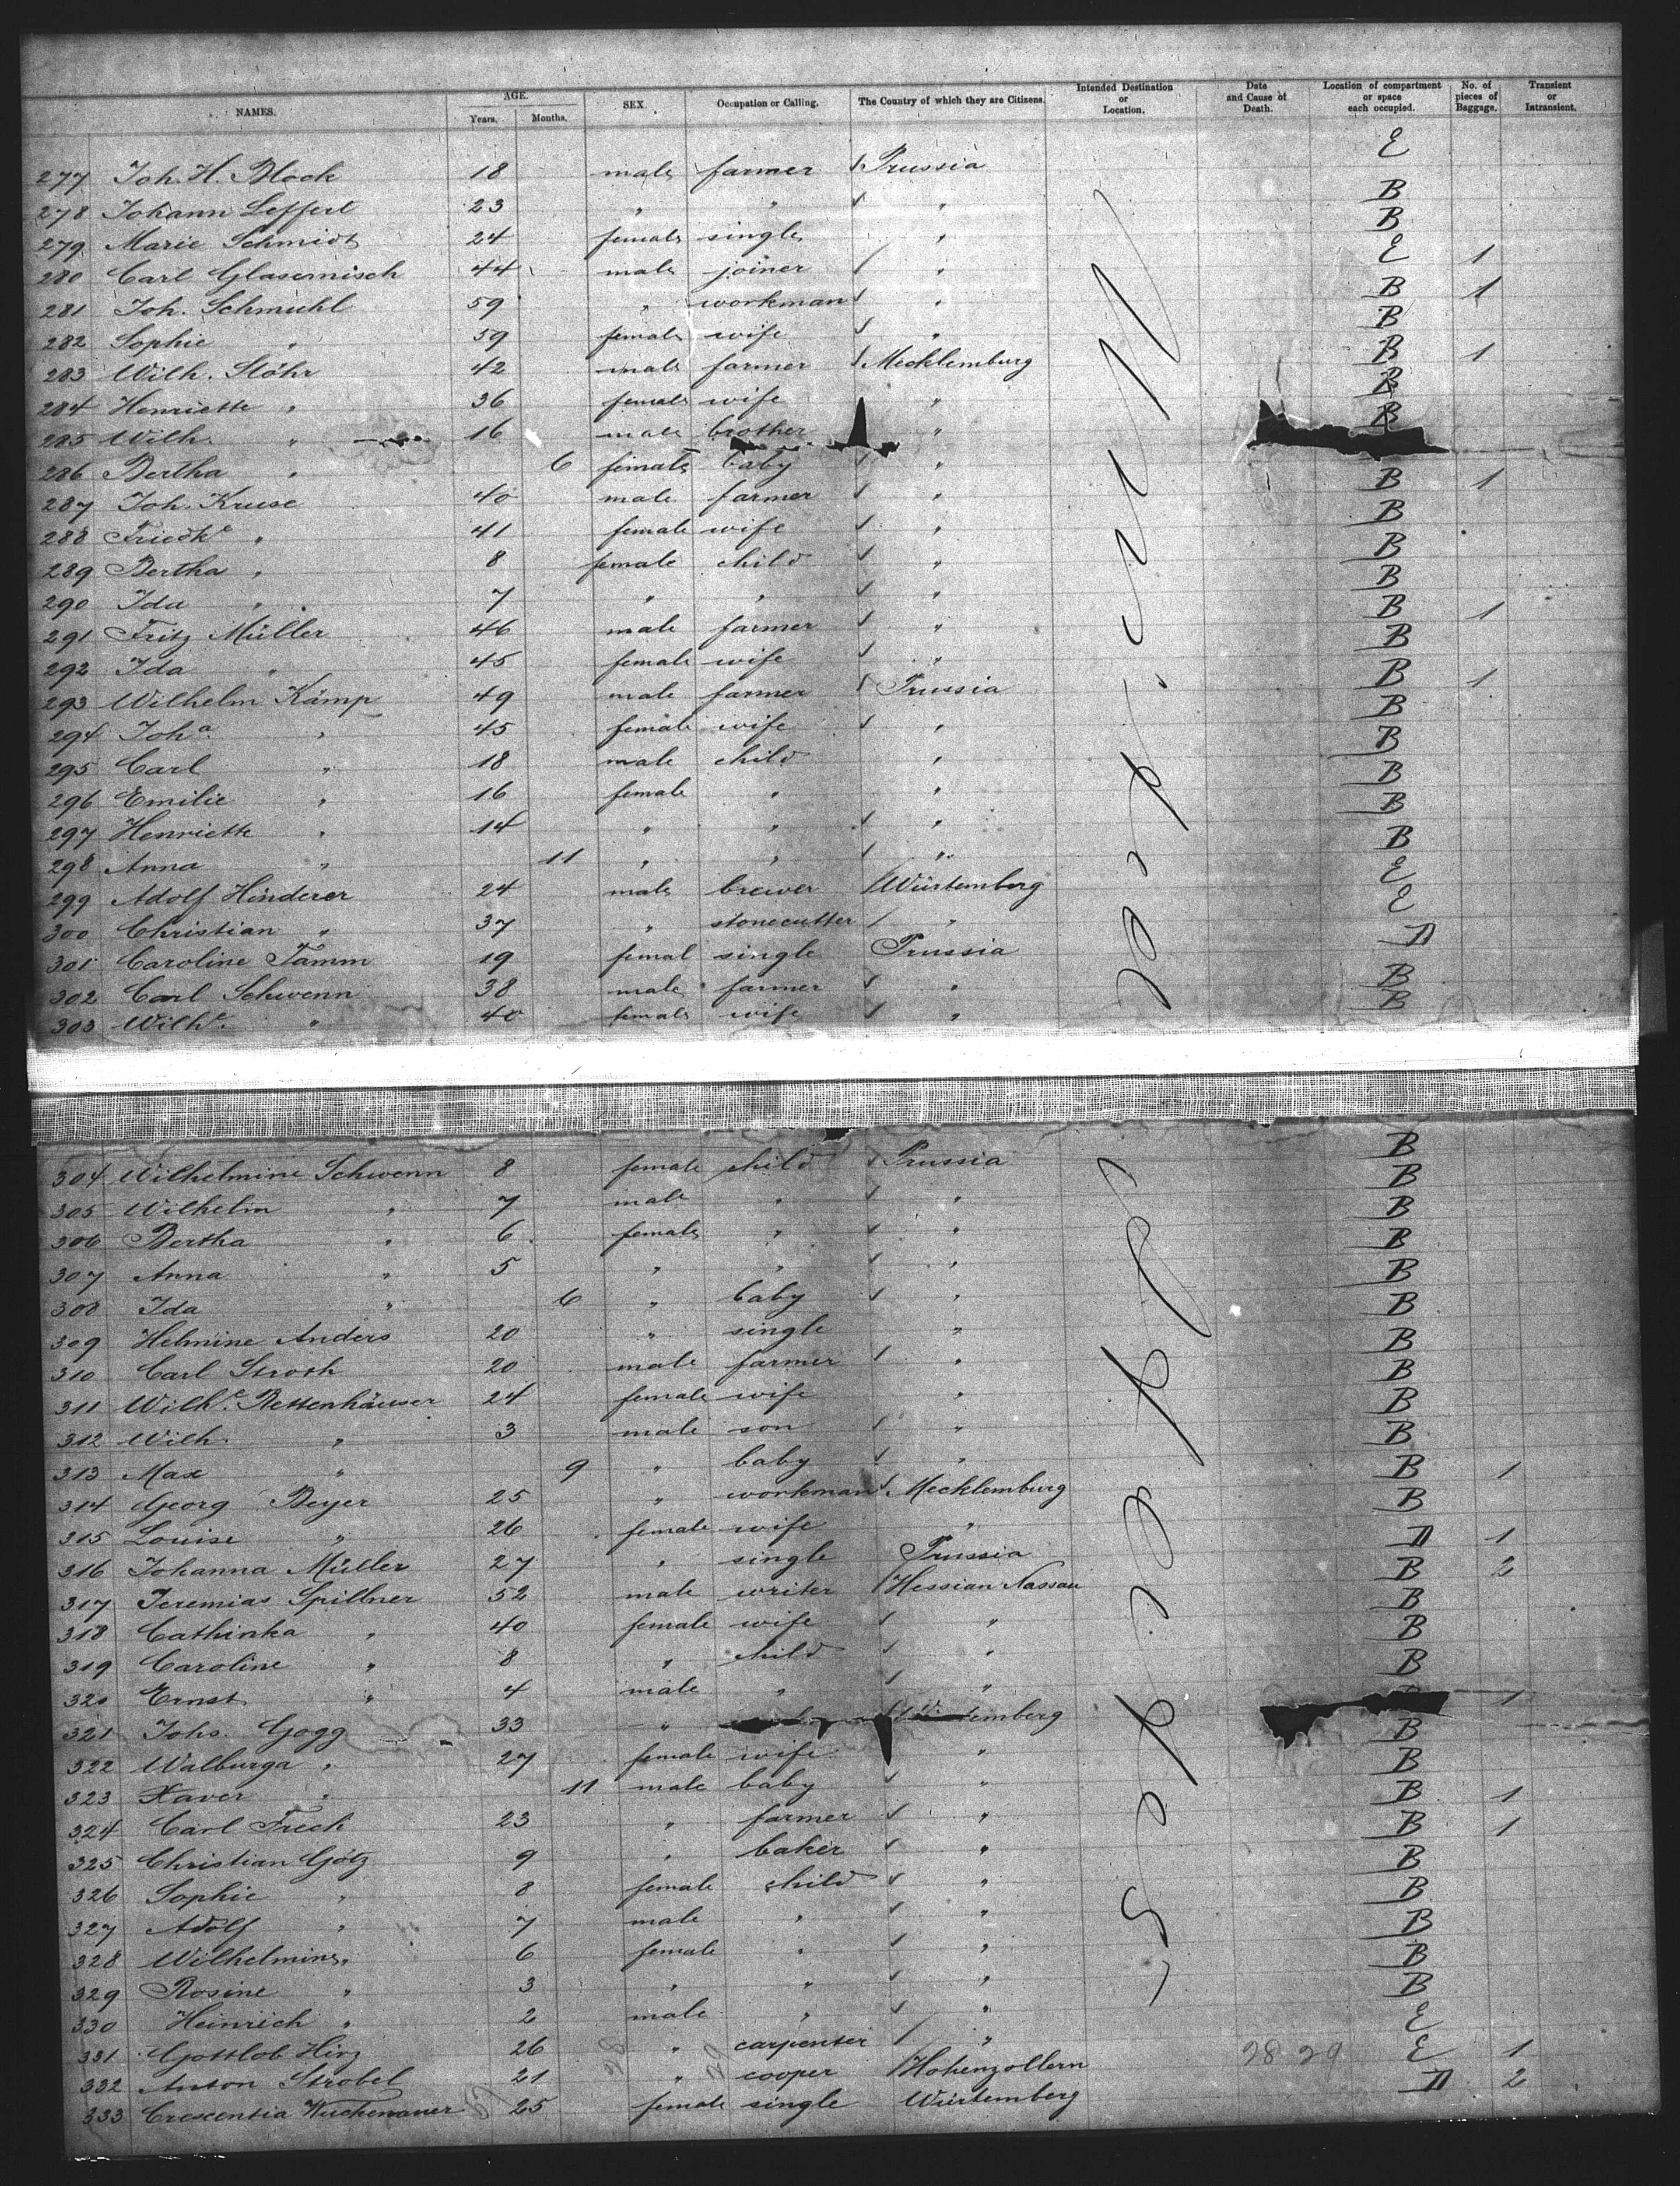 NAMES. AGE. Years. Months. SEX. Occupation or Calling. The Country of which they are Citizens. Intended Destination or Location. Date and Cause of Death. Location of compartment or space each occupied. No. of pieces of Baggage. Transient or Intransient.
277 Joh. H. Block 18 male farmer Prussia E
278 Johann Leffert 23 " " " B
279 Marie Schmidt 24 female single " B
280 Carl Glasernisch 44 male joiner " E 1
281 Joh. Schmuhl 59 " workman " B 1
282 Sophie " 59 female wife " B
283 Wilh. Stöhr 42 male farmer Mecklemburg B 1
284 Henriette " 36 female wife " B
285 Wilh. " 16 male brother " B
286 Bertha " 6 female baby "
287 Joh. Kruse 40 male farmer " B 1
288 Friedke " 41 female wife " B
289 Bertha " 8 female child " B
290 Ida " 7 " " " B
291 Fritz Müller 46 male farmer " B 1
292 Ida " 45 female wife " B
293 Wilhelm Kämp 49 male farmer Prussia B 1
294 Joha " 45 female wife " B
295 Carl " 18 male child " B
296 Emilie " 16 female " " B
297 Henriette " 14 " " " B
298 Anna " 11 " " " B
299 Adolf Hinderer 24 male brewer Würtemberg E
300 Christian " 37 " stonecutter " E
301 Caroline Tamm 19 femal single Prussia D
302 Carl Schwenn 38 male farmer " B
303 Wilhe. " 40 female wife " B
304 Wilhelmine Schwenn 8 female child Prussia B
305 Wilhelm " 7 male " " B
306 Bertha " 6 female " " B
307 Anna " 5 " " " B
308 Ida " 6 " baby " B
309 Helmine Anders 20 " single " B
310 Carl Stroth 20 male farmer " B
311 Wilhe. Rettenhäuser 24 female wife " B
312 Wilh. " 3 male son " B
313 Max " 9 " baby " B
314 Georg Beyer 25 " workman Mecklemburg B 1
315 Louise " 26 female wife " B
316 Johanna Müller 27 " single Prussia D 1
317 Jeremias Spillner 52 male writer Hessian Nassau B 2
318 Cathinka " 40 female wife " B
319 Caroline " 8 " child " B
320 Ernst " 4 male " " B
321 Johs. Gogg 33 " temberg 1
322 Walburga " 27 female wife " B
323 Xaver " 11 male baby " B
324 Carl Frech 23 " farmer " B 1
325 Christian Götz 9 " baker " B 1
326 Sophie " 8 female child " B
327 Adolf " 7 male " " B
328 Wilhelmine " 6 female " " B
329 Rosine " 3 " " " B
330 Heinrich " 2 male " " B
331 Gottlob Hinz 26 " carpenter " E
332 Anton Strobel 21 " cooper Hohenzollern 28 29 E 1
333 Crescentia Wuchenauer 25 female single Würtemberg D 2